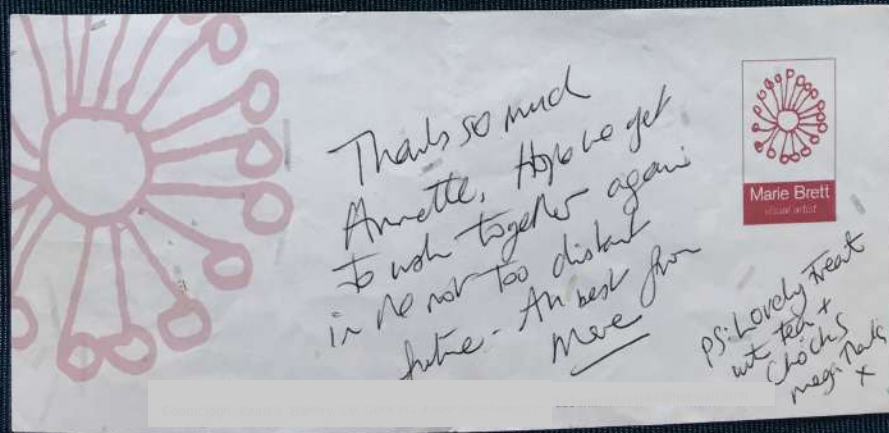 Thanks so much
Annette, Hope we get
to work together again
in the not too distant
future - All best from
Marie
Marie Brett
visual artist
PS: Lovely treat
wt tea +
Chocks
mega thanks
x